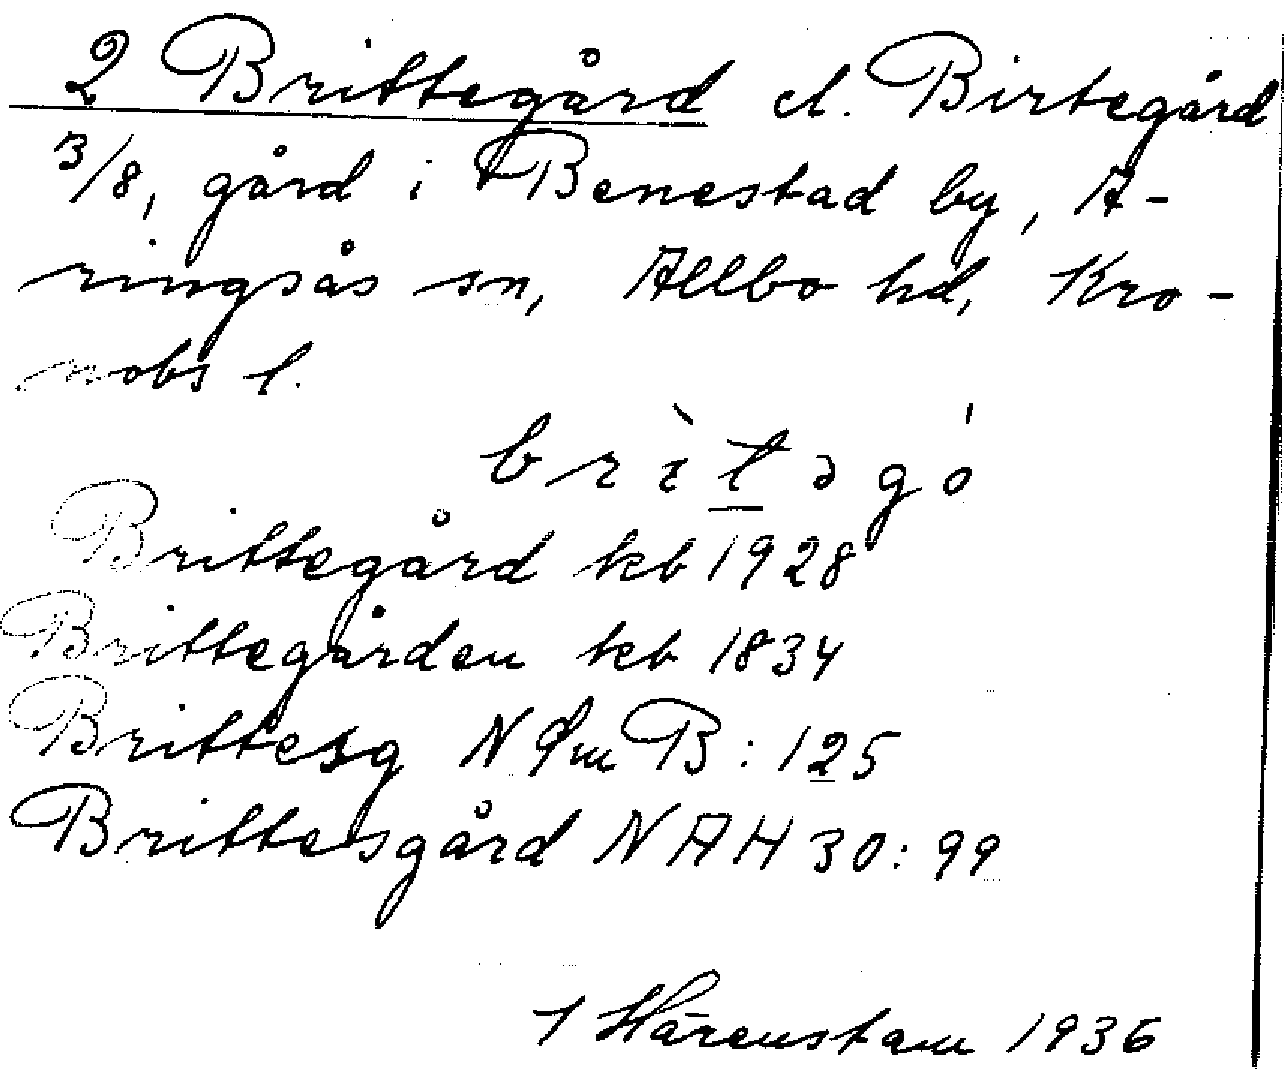 2 Brittegård el. Birtegård
3/8, gård i Benestad by, A-
ringsås sn, Allbo hd, Kro-
nobs l.
brìtəgó
Brittegård kb 1928
Brittegården kb 1834
Brittesg N Dm B: 125
Brittesgård NAH 30: 99
Härenstam 1936